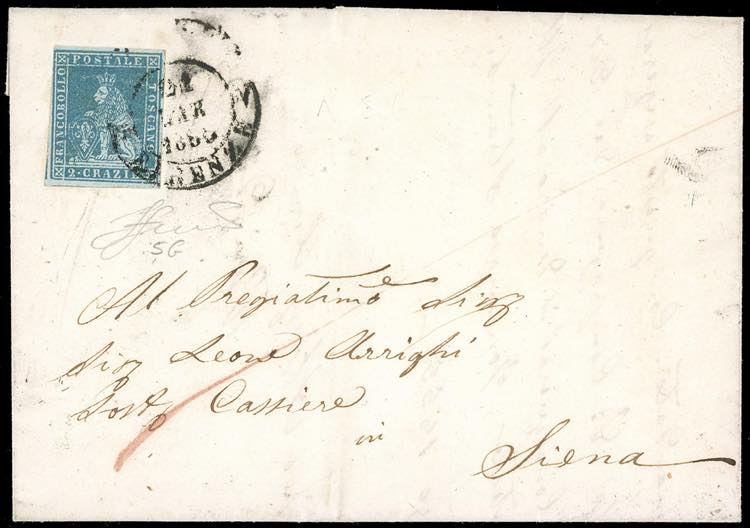 FRANCOBOLLO
POSTALE
TOSCANO
2·CRAZIE
21
MAR
FIRENZE
SG
Al Pregiatimo Sigr
Sigr Leone Arrighi
Cassiere
in
Siena